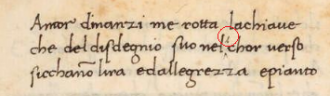 Amor dinanzi me rotta lachiave
che del disdegnio suo nel chor verso
sicchano lira edallegrezza epianto